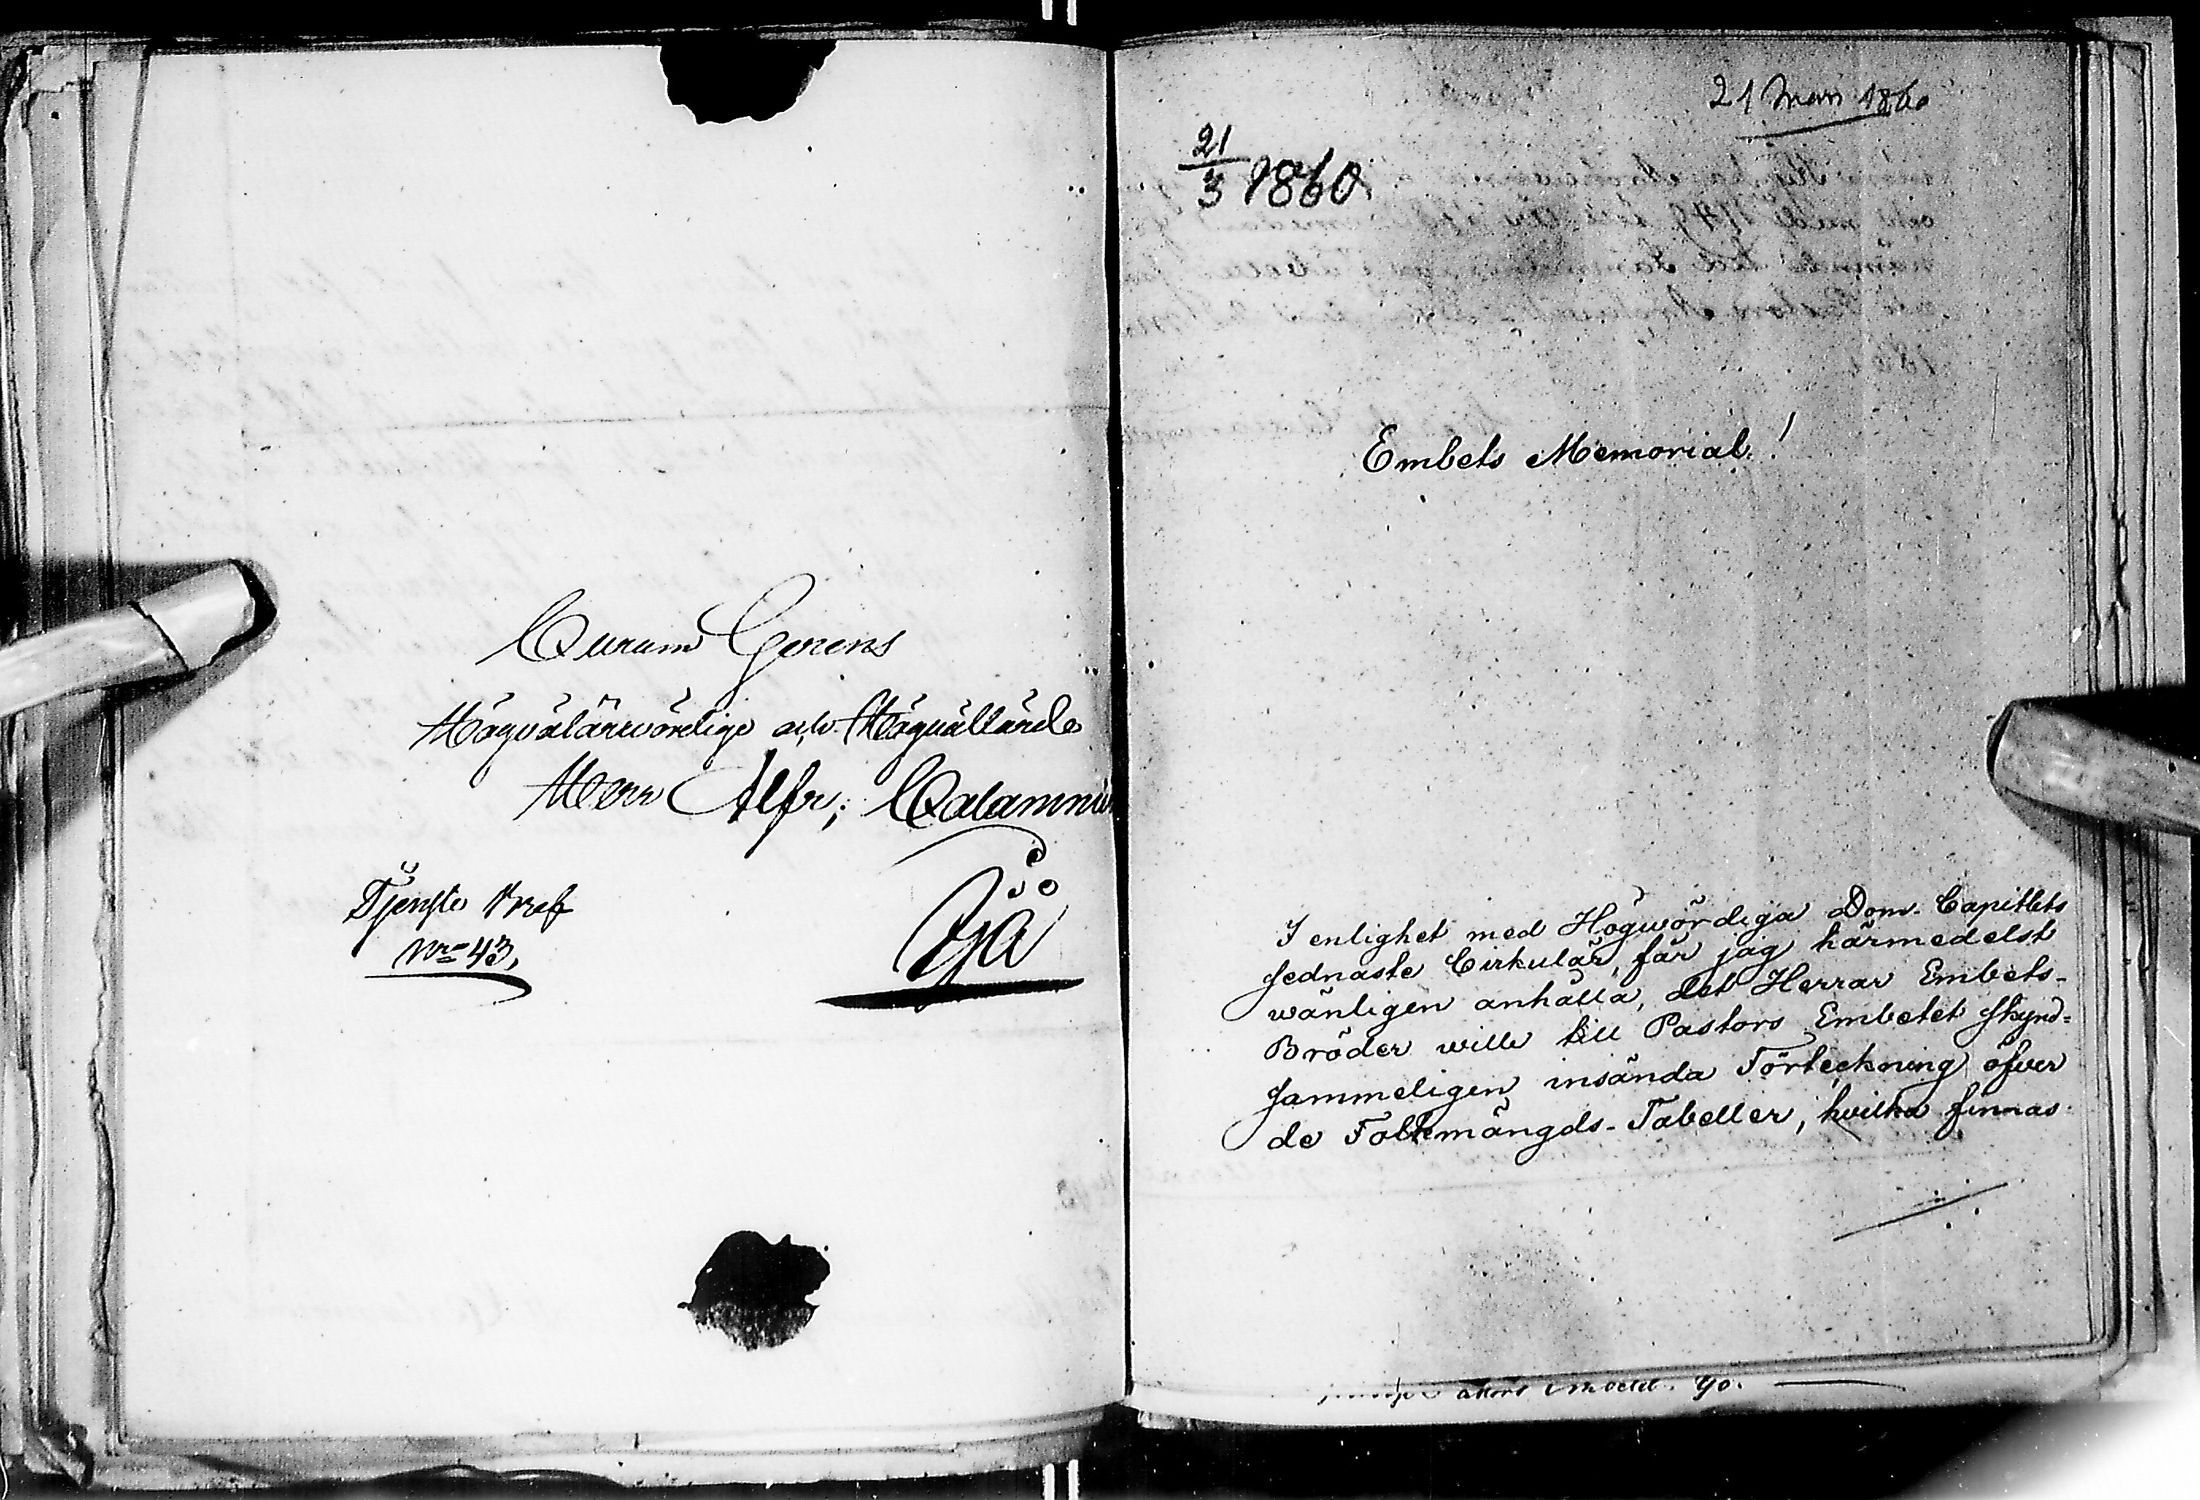 Curam Gerens
Högvälärevördige och Höguällärde
Herr Alfr; Calamnius
Tjenste bref
Nr 43,
Yjå
21 Mars 1860
21/3 1860.
Embets Memorial!
I enlighet med Högwördiga Dom-Capitlets
sednaste Cirkulär, får jag härmedelst
wänligen anhålla, det Herrar Embets-
Bröder wille till Pastors Embetet skynd=
sammeligen insända Förteckning öfver
de Folkmängds-Tabeller, hvilka finnas